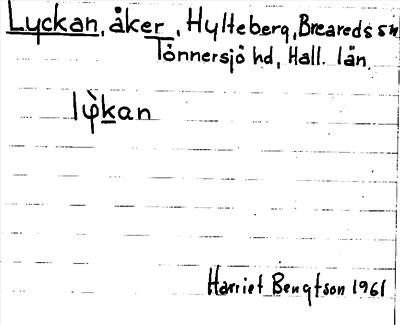 Lyckan, åker, Hylteberg, Breareds sn
Tönnersjö hd, Hall. län.
lφ̀kan
Harriet Bengtson 1961